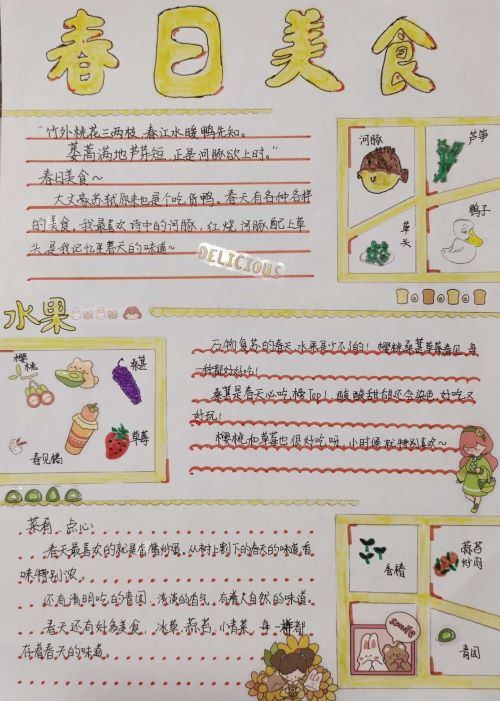 春日美食
"竹外桃花三两枝，春江水暖鸭先知。
蒌蒿满地芦芽短，正是河豚欲上时。"
春日美食~
大文豪苏轼原来也是个吃货鸭。春天有各种各样
的美食，我最喜欢诗中的河豚，红烧河豚配上草
头是我记忆里春天的味道~
DELICIOUS
河豚
芦笋
草头
鸭子
水果
樱桃
桑葚
草莓
春见橘
万物复苏的春天，水果是少不了的！樱桃桑葚草莓春见，每
一种都好好吃！
桑葚是春天必吃榜Top1，酸酸甜甜还会染色，好吃又
好玩！
樱桃和草莓也很好吃呀，小时候就特别喜欢~
菜肴、点心：
春天最喜欢的就是香椿炒蛋。从树上割下的春天的味道香
味特别浓。
还有清明吃的青团，淡淡的香气，有着大自然的味道。
春天还有好多美食，冰草、蒜苔、小青菜，每一样都
存着春天的味道。
香椿
蒜苔炒肉
smile
青团